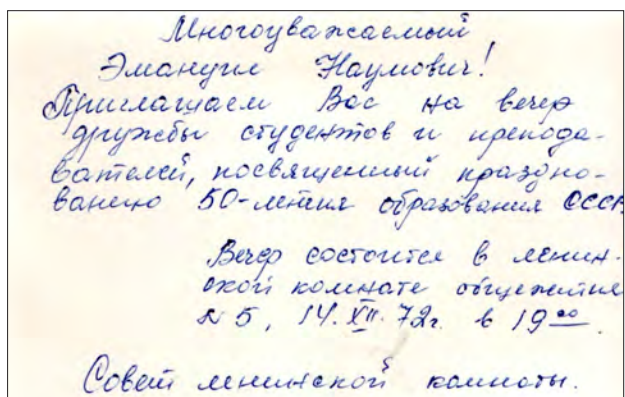 Многоуважаемый
Эмануил Наумович!
Приглашаем Вас на вечер
дружбы студентов и препода-
вателей, посвященный праздно-
ванию 50-летия образования СССР
Вечер состоится в ленин-
ской комнате общежития
№5, 14.XII.72г. в 19 00
Совет ленинской комнаты.